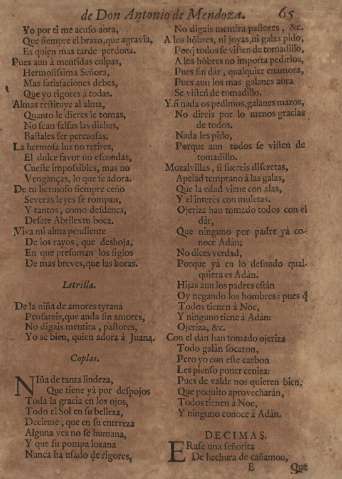 de Don Antonio de Mendoza. 65
Yo por ti me acuso aora,
Que siempre el brazo, que agravia,
Es quien mas tarde perdona.
Pues aun à mentidas culpas,
Hermosissima Señora,
Mas satisfaciones debes,
Que yo rigores à todas.
Almas restituye al alma,
Quanto le dieres le tomas,
No sean falsas las dichas,
Bastales ser perezosas.
La hermosa luz no retires,
El dulce favor no escondas,
Cueste impossibles, mas no
Venganças, lo que te adora.
De tu hermoso siempre ceño
Severas leyes se rompan,
Y tantos, como desdenes,
Desate Abellexto boca.
Viva mi alma pendiente
De los rayos, que deshoja,
En que presuman los siglos
De mas breves, que las horas.
Letrilla.
De la niña de amores tyrana
Pensareis, que anda sin amores,
No digais mentira, pastores,
Yo se bien, quien adora à Juana.
Coplas.
Niña de tanta lindeza,
Que tiene yà por despojos
Toda la gracia en los ojos,
Todo el Sol en su belleza,
Dezidme, que en su entereza
Alguna vez no se humana,
Y que su pompa lozana
Nunca ha usado de rigores,
No digais mentira pastores, &c.
A los hõbres, ni joyas, ni galas pido,
Pero todos se visten de tomadillo,
A los hõbres no importa pedirlos,
Pues sin dar, qualquier enamora,
Pues aun los mas galanes aora
Se visten de tomadillo.
Y si nada os pedimos, galanes maxos,
No direis por lo menos gracias
de todos.
Nada les pido,
Porque aun todos se visten de
tomadillo.
Moralvillas, si sueris discretas,
Apelad temprano à las galas,
Que la edad viene con alas,
Y el interès con muletas.
Ojeriza han tomado todos con el
dàr,
Que ninguno por padre ya co-
noce Adàn;
No dices verdad,
Porque ya en lo desnudo qual-
quiera es Adan.
Hijas aun los padres estàn
Oy negando los hombres: pues q̃
Todos tienen à Noè,
Y ninguno tiene à Adàn:
Ojeriza, &c.
Con el dàn han tomado ojeriza
Todo galàn socarron,
Pero yo con este carbon
Les pienso poner ceniza:
Pues de valde nos quieren bien,
Que poquito aprovecharàn,
Todos tienen à Noè,
Y ninguno conoce à Adàn.
DECIMAS.
Erase una señorita
De hechura de cañamou,
E Que